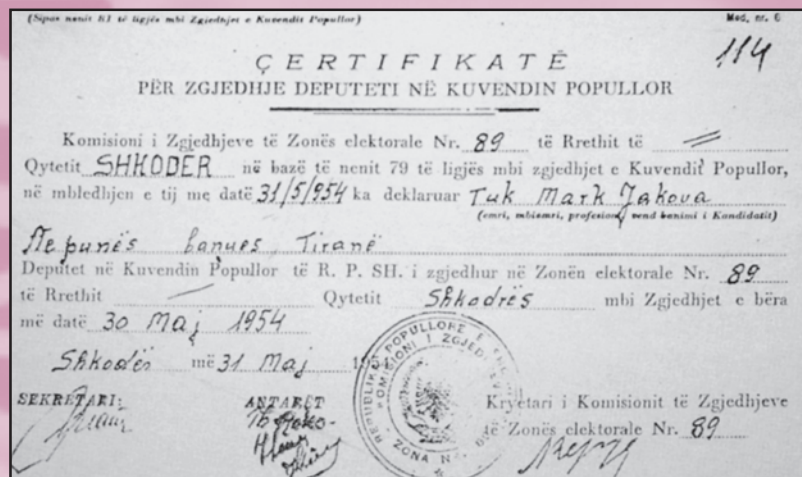 (Sipas nenit 81 të ligjës mbi Zgjedhjet e Kuvendit Popullor) Mod. nr. 6
114
ÇERTIFIKATË
PËR ZGJEDHJE DEPUTETI NË KUVENDIN POPULLOR
Komisioni i Zgjedhjeve të Zonës elektorale Nr. 89 të Rrethit të
Qytetit SHKODER në bazë të nenit 79 të ligjës mbi zgjedhjet e Kuvendit Popullor,
në mbledhjen e tij me datë 31/5/954 ka deklaruar Tuk Mark Jakova
(emri, mbiemri, profesioni vend banimi i Kandidatit)
Nepunës banues Tiranë
Deputet në Kuvendin Popullor të R. P. SH. i zgjedhur në Zonën elektorale Nr. 89
të Rrethit Qytetit Shkodrës mbi Zgjedhjet e bëra
më datë 30 Maj 1954
Shkodër më 31 Maj 195
SEKRETARI: ANTARËT Kryetari i Komisionit të Zgjedhjeve
të Zonës elektorale Nr. 89
REPUBLIKA POPULLORE E
KOMISIONI I ZGJEDHJEVE
ZONA Nr.